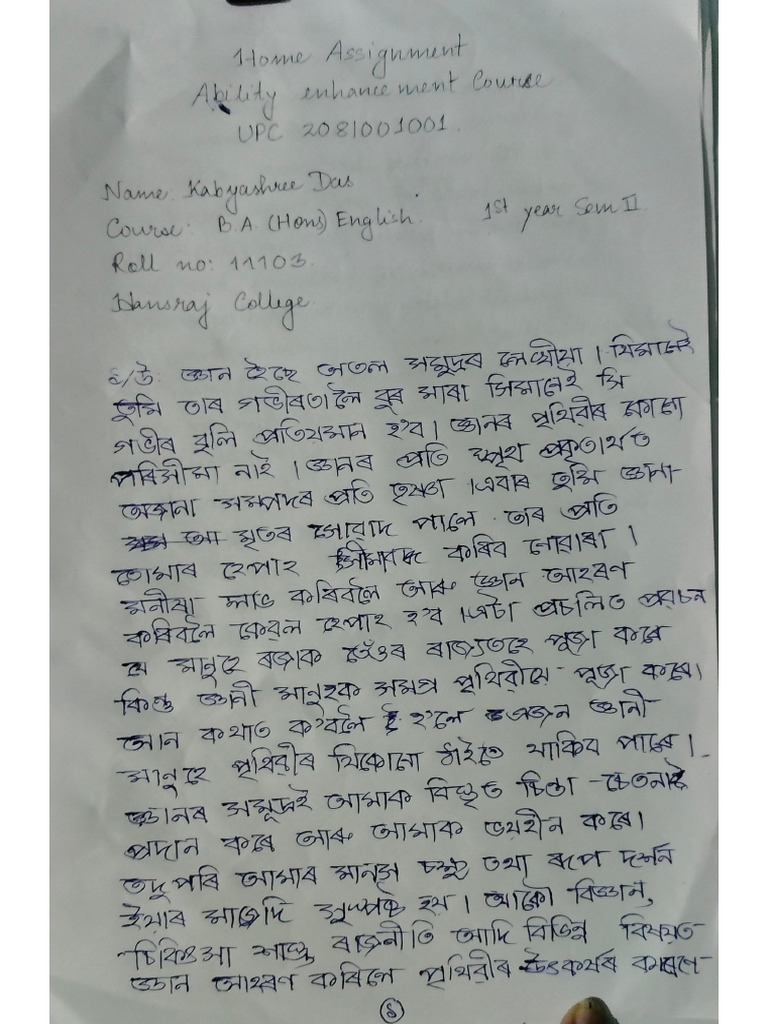 Home Assignment
Ability enhancement Course
UPC 2081001001.
Name: Kabyashree Das
Course: B.A. (Hons) English. 1st year Sem II
Roll no: 11103.
Hansraj College.
১/উঃ জ্ঞান হৈছে অতল সমুদ্ৰৰ লেখীয়া । যিমানেই
তুমি তাৰ গভীৰতালৈ বুৰ মাৰা সিমানেই সি
গভীৰ বুলি প্ৰতিয়মান হ'ব। জ্ঞানৰ পৃথিৱীৰ কোনো
পৰিসীমা নাই । জ্ঞানৰ প্ৰতি স্পৃহা প্ৰকৃতাৰ্থত
অজানা সম্পদৰ প্ৰতি তৃষ্ণা ।এবাৰ তুমি জ্ঞান-
মৃতৰ সোৱাদ পালে তাৰ প্ৰতি
তোমাৰ হেপাহ কৰিব নোৱাৰা ।
মনীষা লাভ কৰিবলৈ আৰু জ্ঞান আহৰণ
কৰিবলৈ কেৱল হেপাহ হ'ব ।এটা প্ৰচলিত প্ৰবচন
যে মানুহে ৰজাক তেওঁৰ ৰাজ্যতহে পূজা কৰে
কিন্তু জ্ঞানী মানুহক সমগ্ৰ পৃথিৱীয়ে পূজা কৰে।
আন কথাত ক'বলৈ হ'লে এজন জ্ঞানী
মানুহে পৃথিৱীৰ যিকোনো ঠাইতে থাকিব পাৰে ।
জ্ঞানৰ সমুদ্ৰই আমাক বিস্তৃত চিন্তা-চেতনাৰে
প্ৰদান কৰে আৰু আমাক ভয়হীন কৰে।
তদুপৰি আমাৰ মানস চক্ষু তথা ৰূপে দৰ্শন
ইয়াৰ মাজেদি সুস্পষ্ট হয় । আকৌ বিজ্ঞান,
চিকিৎসা শাস্ত্ৰ ৰাজনীতি আদি বিভিন্ন বিষয়ত
জ্ঞান আহৰণ কৰিলে পৃথিৱীৰ উৎকৰ্ষৰ কাৰণে
①